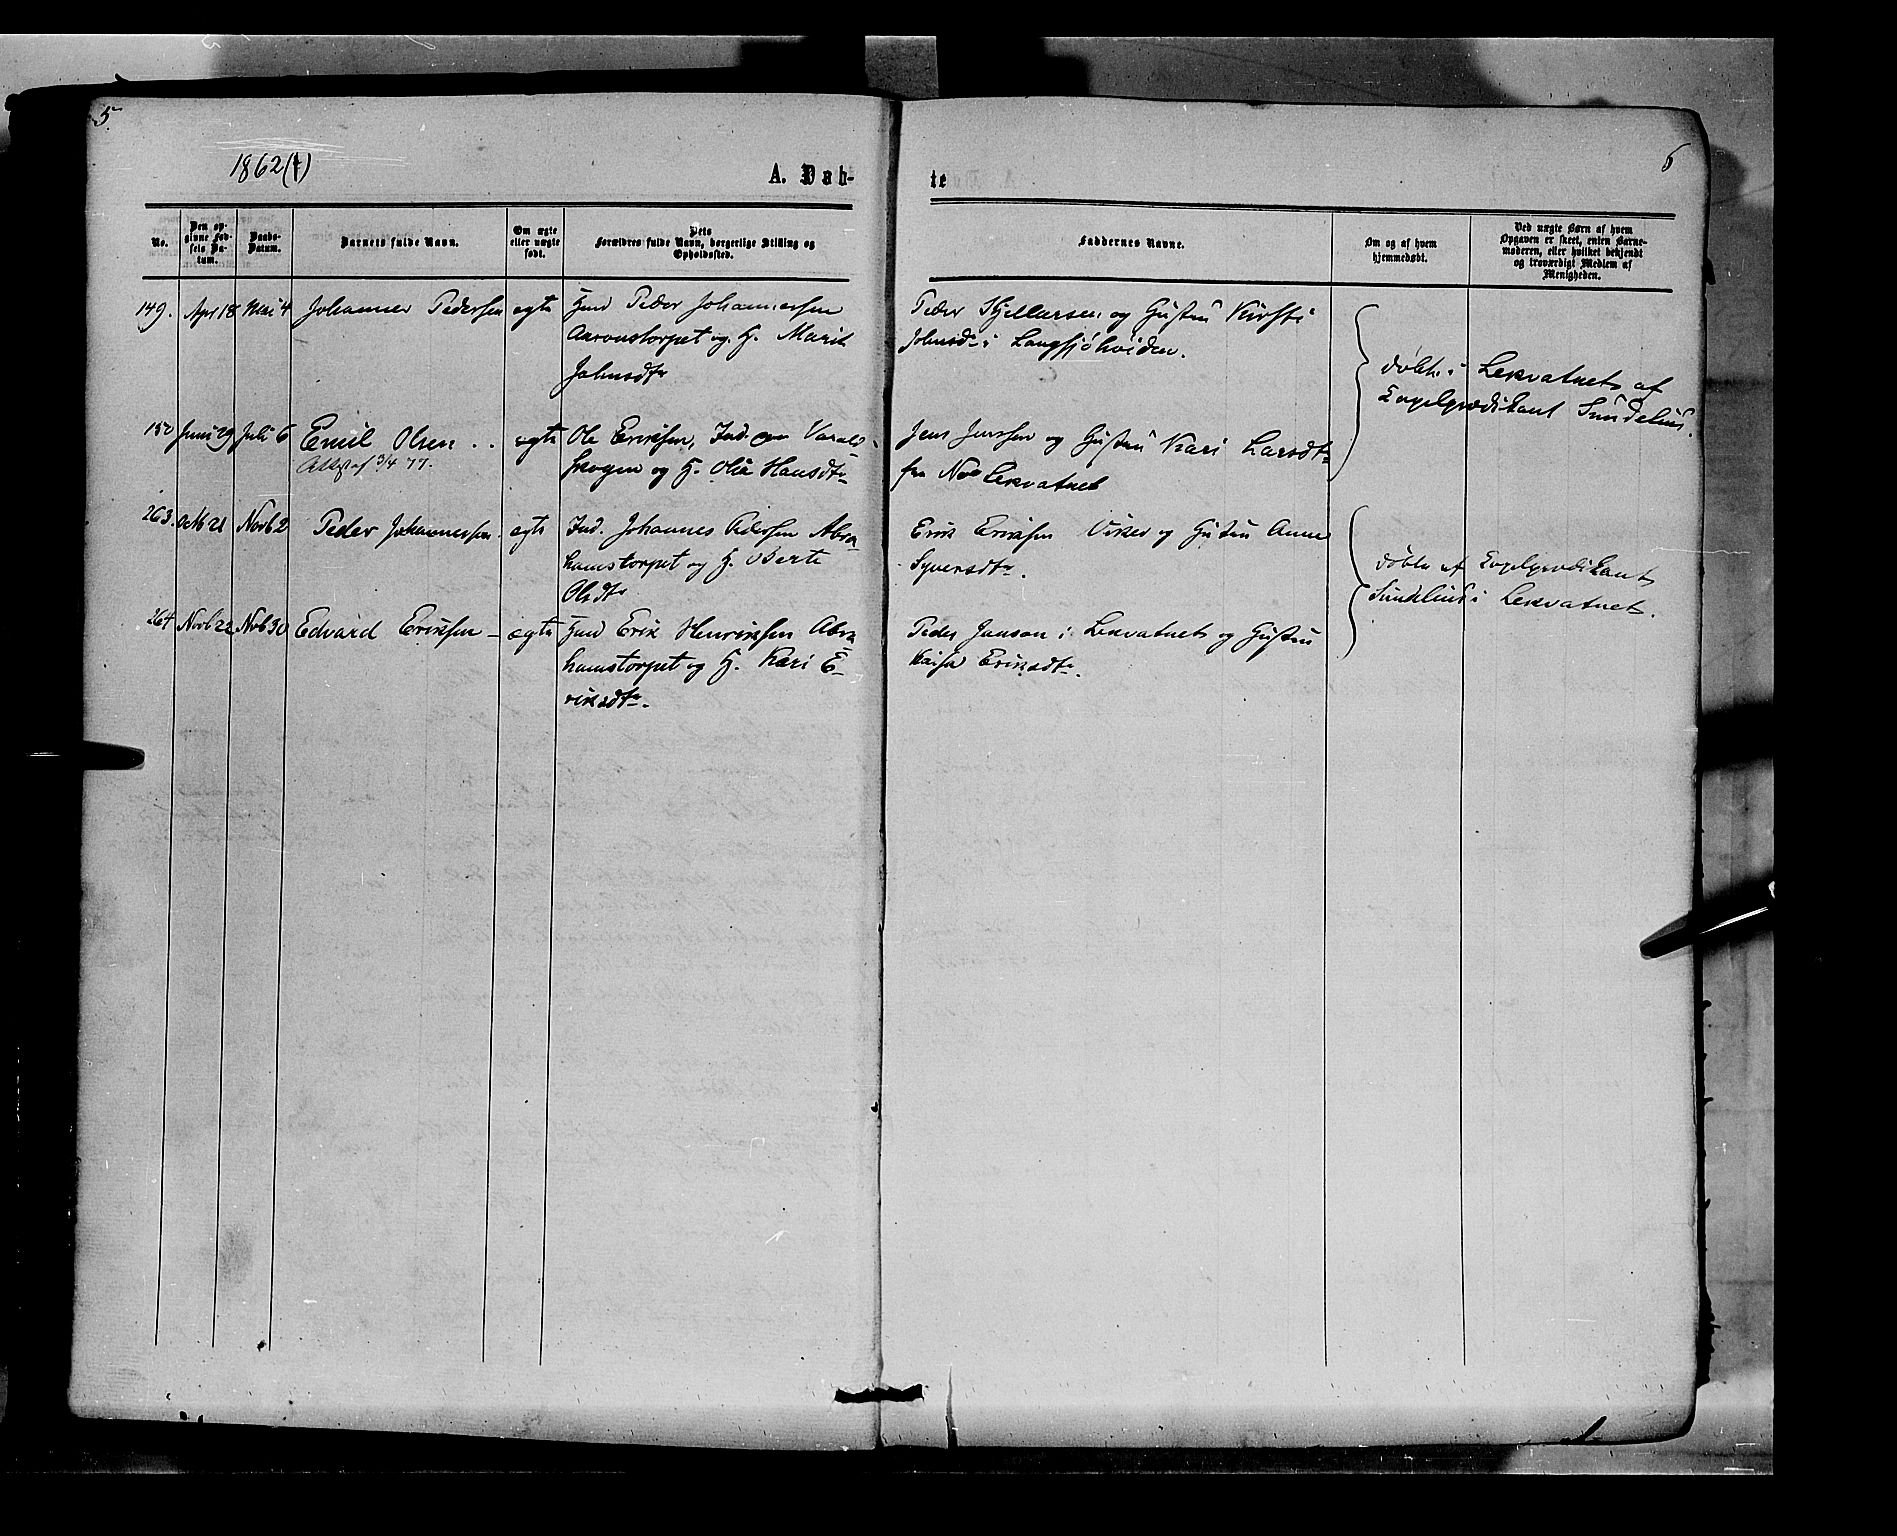 5
6
1862(4)
A. Døb-
te
No.
Den op-
givne Fød-
sels Da-
tum.
Daabs-
Datum.
Barnets fulde Navn.
Om ægte
eller uægte
født.
Dets
Forældres fulde Navn, borgerlige Stilling og
Opholdssted.
Faddernes Navne.
Om og af hvem
hjemmedøbt.
Ved uægte Børn af hvem
Opgaven er skeet, enten Barne-
moderen, eller hvilket bekjendt
og troværdigt Medlem af
Menigheden.
149. Apr 18 Mai 4 Johannes Pedersen ægte Ind Peder Johannessen
Aaronstorpet og H. Marit
Johnsdtr
Peder Kjellersen og Hustru Kirsti
Johnsdtr i Langsjøhøiden.
døbte i Lekvatnets af
Capelprædikant Sundelius.
150 Juni 29 Juli 6 Emil Olsen ægte Ole Eriksen, Ind. Varald-
skogen og H. Olia Hansdtr
Attst af 3/4 77.
Jens Jensen og Hustru Kari Larsdtr
fra Lekvatnet
263. Octb 21 Novb 2 Peder Johannessen ægte Ind. Johannes Pedersen Abra
hamstorpet og H. Berte
Olsdtr
Erik Eriksen Viker og Hustru Anne
Syversdtr.
døbte af Capelprædikant
Sundelius i Lekvatnet.
264 Novb 22 Novb 30 Edvard Eriksen - ægte Ind Erik Henriksen Abra
hamstorpet og H. Kari E-
riksdtr.
Peder Janson i Lekvatnets og Hustru
Kaisa Eriksdtr.